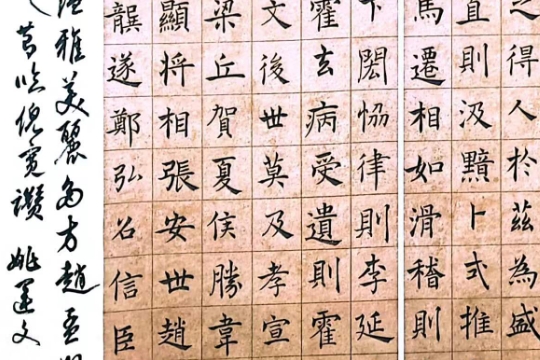 之得人於茲為盛
直則汲黯卜式推
馬遷相如滑稽則
下閎恊律則李延
霍去病受遺則霍
文後世莫及孝宣
梁丘賀夏侯勝韋
顯將相張安世趙
龔遂鄭弘召信臣
雅美麗方趙孟
臨倪寬讚 姚文